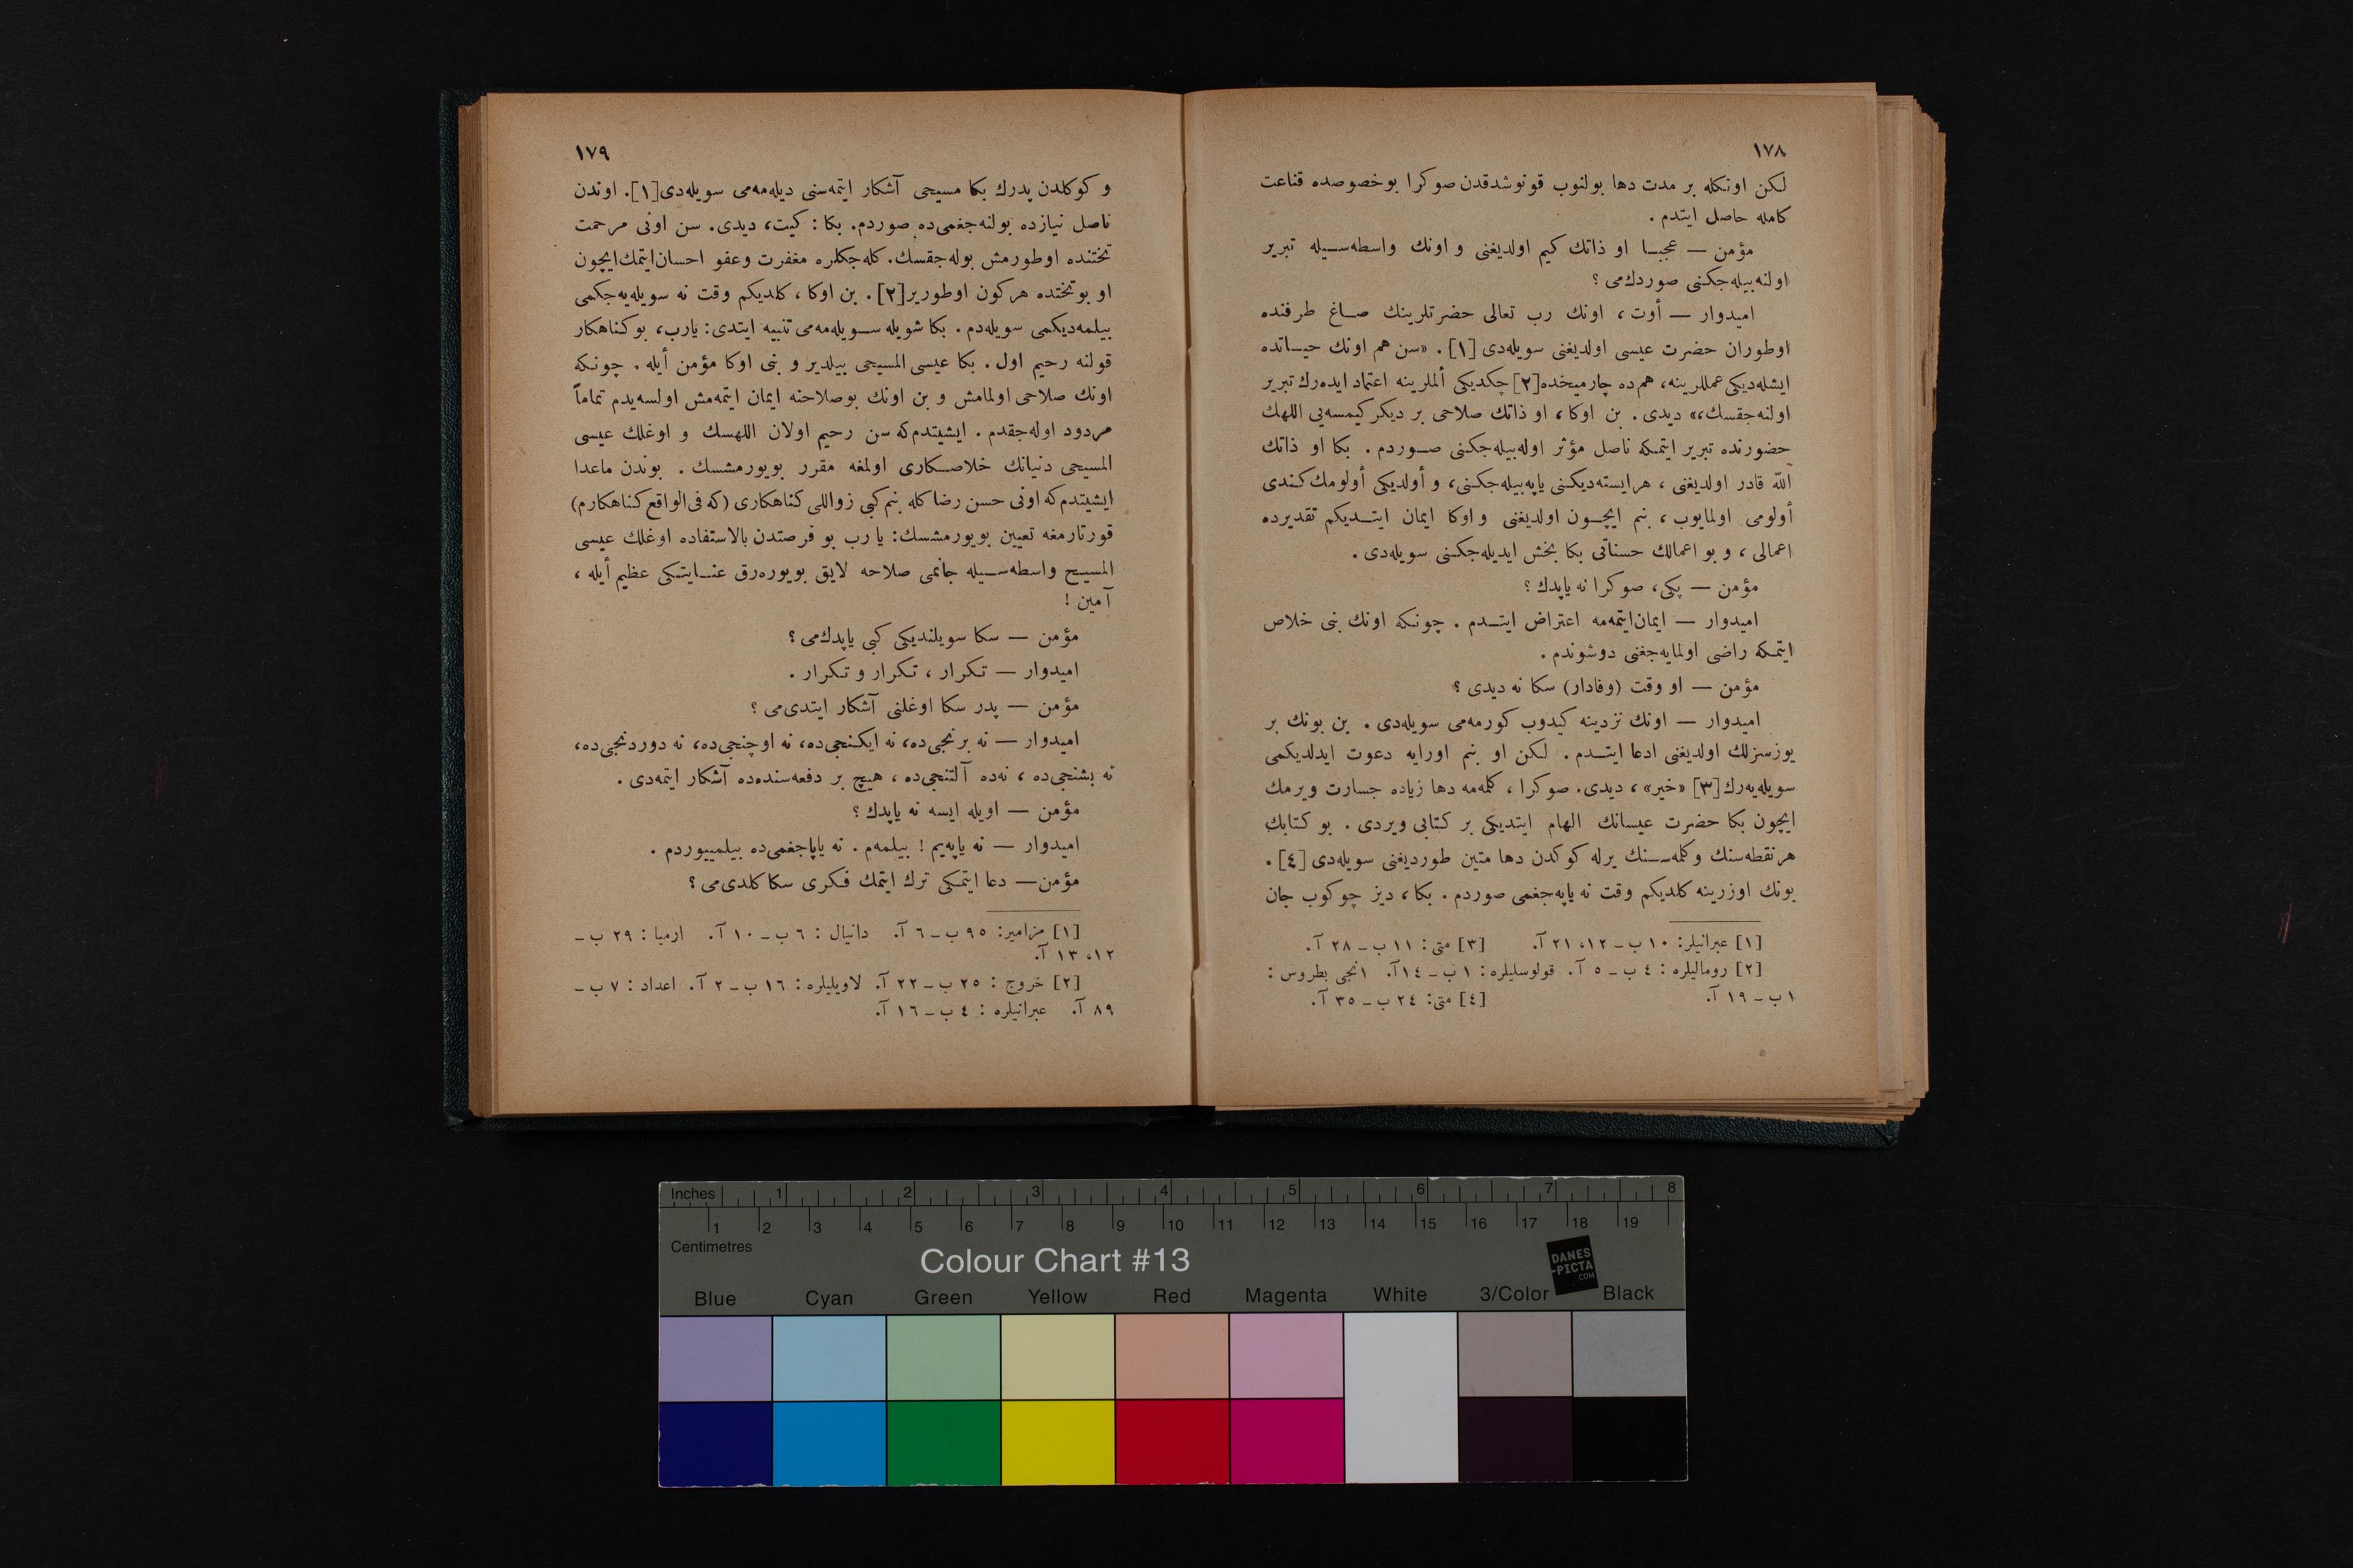 ١٧٨
لكن اونكله بر مدت دها بولنوب قونوشدقدن صوكرا بوخصوصده قناعت
كامله حاصل ايتدم .
مؤمن — عجبا او ذاتك كيم اولديغنى و اونك واسطه‌سيله تبرير
اولنه‌بيله‌جكنى صوردك‌مى ؟
اميدوار — أوت ، اونك رب تعالى حضرتلرينك صاغ طرفنده
اوطوران حضرت عيسى اولديغنى سويله‌دى [١] . «سن هم اونك حياتده
ايشله‌ديكى عمللرينه، هم‌ده چارميخده[٢] چكديكى ألملرينه اعتماد ايده‌رك تبرير
اولنه‌جقسك،» ديدى . بن اوكا ، او ذاتك صلاحى بر ديكر كيمسه‌يى اللهك
حضورنده تبرير ايتمكه ناصل مؤثر اوله‌بيله‌جكنى صوردم . بكا او ذاتك
الله قادر اولديغنى ، هرايسته‌ديكنى ياپه‌بيله‌جكنى، و أولديكى أولومك كندى
أولومى اولمايوب ، بنم ايچون اولديغنى و اوكا ايمان ايتديكم تقديرده
اعمالى ، و بو اعمالك حسناتى بكا بخش ايديله‌جكنى سويله‌دى .
مؤمن — پكى، صوكرا نه ياپدك ؟
اميدوار — ايمان‌ايتمه‌مه اعتراض ايتدم . چونكه اونك بنى خلاص
ايتمكه راضى اولمايه‌جغنى دوشوندم .
مؤمن — او وقت (وفادار) سكا نه ديدى ؟
اميدوار — اونك نزدينه كيدوب كورمه‌مى سويله‌دى . بن بونك بر
يوزسزلك اولديغنى ادعا ايتدم . لكن او بنم اورايه دعوت ايدلديكمى
سويله‌يه‌رك[٣] «خير» ، ديدى. صوكرا ، كلمه‌مه دها زياده جسارت ويرمك
ايچون بكا حضرت عيسانك الهام ايتديكى بر كتابى ويردى . بو كتابك
هرنقطه‌سنك و كلمه‌سنك يرله كوكدن دها متين طورديغنى سويله‌دى [٤] .
بونك اوزرينه كلديكم وقت نه ياپه‌جغمى صوردم . بكا ، ديز چوكوب جان
[١] عبرانيلر: ١٠ ب ـ ١٢، ٢١ آ. [٣] متى: ١١ ب ـ ٢٨ آ.
[٢] روماليلره : ٤ ب ـ ٥ آ. قولوسليلره : ١ ب ـ ١٤ آ. ١نجى بطروس :
١ ب ـ ١٩ آ. [٤] متى: ٢٤ ب ـ ٣٥ آ.
١٧٩
و كوكلدن پدرك بكا مسيحى آشكار ايتمه‌سنى ديله‌مه‌مى سويله‌دى[١]. اوندن
ناصل نيازده بولنه‌جغمى‌ده صوردم. بكا : كيت، ديدى. سن اونى مرحمت
تختنده اوطورمش بوله‌جقسك. كله‌جكلره مغفرت وعفو احسان‌ايتمك‌ايچون
او بوتختده هركون اوطورير[٢]. بن اوكا ، كلديكم وقت نه سويله‌يه‌جكمى
بيلمه‌ديكمى سويله‌دم . بكا شويله سويله‌مه‌مى تنبيه ايتدى: يارب، بوكناهكار
قولنه رحيم اول . بكا عيسى المسيحى بيلدير و بنى اوكا مؤمن أيله . چونكه
اونك صلاحى اولمامش و بن اونك بوصلاحنه ايمان ايتمه‌مش اولسه‌يدم تماماً
مردود اوله‌جقدم . ايشيتدم‌كه سن رحيم اولان اللهسك و اوغلك عيسى
المسيحى دنيانك خلاصكارى اولمغه مقرر بويورمشسك . بوندن ماعدا
ايشيتدم‌كه اونى حسن رضا كله بنم كبى زواللى كناهكارى (كه فى‌الواقع كناهكارم)
قورتارمغه تعيين بويورمشسك: يا رب بو فرصتدن بالاستفاده اوغلك عيسى
المسيح واسطه‌سيله جانمى صلاحه لايق بويوره‌رق عنايتكى عظيم أيله ،
آمين !
مؤمن — سكا سويلنديكى كبى ياپدك‌مى ؟
اميدوار — تكرار ، تكرار و تكرار .
مؤمن — پدر سكا اوغلنى آشكار ايتدى‌مى ؟
اميدوار — نه برنجى‌ده، نه ايكنجى‌ده، نه اوچنجى‌ده، نه دوردنجى‌ده،
نه بشنجى‌ده ، نه‌ده آلتنجى‌ده ، هيچ بر دفعه‌سنده‌ده آشكار ايتمه‌دى .
مؤمن — اويله ايسه نه ياپدك ؟
اميدوار — نه ياپه‌يم ! بيلمه‌م . نه ياپاجغمى‌ده بيلمييوردم .
مؤمن— دعا ايتمكى ترك ايتمك فكرى سكا كلدى‌مى ؟
[١] مزامير: ٩٥ ب ـ ٦ آ. دانيال : ٦ ب ـ ١٠ آ. ارميا : ٢٩ ب ـ
١٢، ١٣ آ.
[٢] خروج : ٢٥ ب ـ ٢٢ آ. لاويليلره : ١٦ ب ـ ٢ آ. اعداد : ٧ ب ـ
٨٩ آ. عبرانيلره : ٤ ب ـ ١٦ آ.
Inches 1 2 3 4 5 6 7 8
1 2 3 4 5 6 7 8 9 10 11 12 13 14 15 16 17 18 19
Centimetres
Colour Chart #13
DANES
-PICTA
.COM
Blue Cyan Green Yellow Red Magenta White 3/Color Black